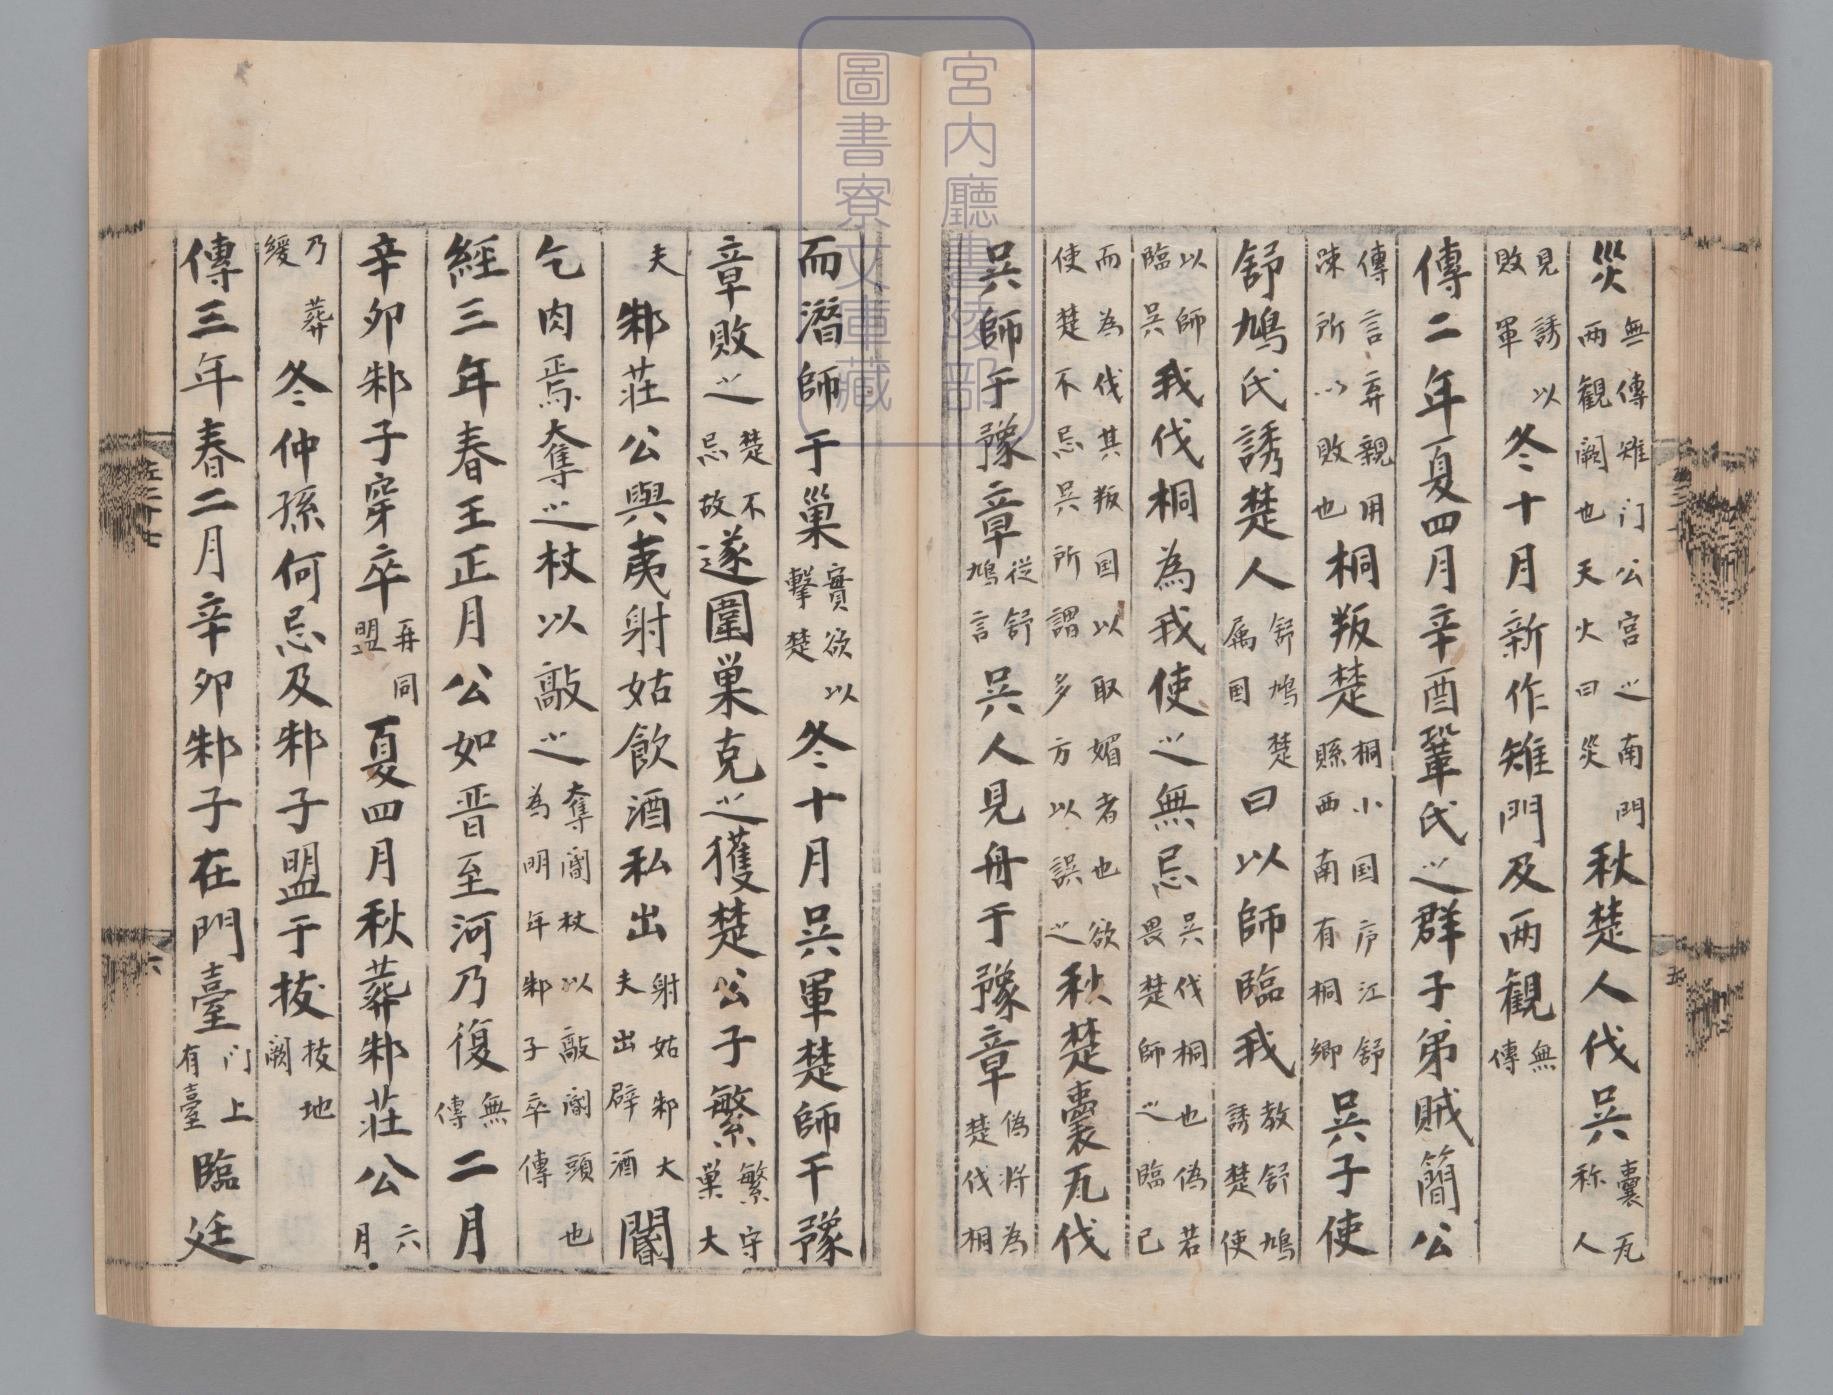 宮内廳書陵部
圖書寮文庫藏
災無傳雉门公宮之南門兩觀闕也天火曰災秋楚人伐吳囊瓦称人
見誘以敗軍冬十月新作雉門及兩觀無傳
傳二年夏四月辛酉鞏氏之群子弟賊簡公
傳言弃親用踈所以敗也桐叛楚桐小国庐江舒縣西南有桐鄉吳子使
舒鳩氏誘楚人舒鳩楚属国曰以師臨我教舒鳩誘楚使
以師臨吳我伐桐為我使之無忌吳伐桐也偽若畏楚師之臨已
而為伐其叛国以取媚者也欲使楚不忌吳所謂多方以誤之秋楚囊瓦伐
吳師于豫章從舒鳩言吳人見舟于豫章偽将為楚伐桐
而潛師于巢實欲以擊楚冬十月吳軍楚師于豫
章敗之楚不忌故遂圍巢克之獲楚公子繁繁守巢大
夫邾莊公與夷射姑飲酒私出射姑邾大夫出辟酒閽
乞肉焉奪之杖以敲之奪閽杖以敲閽頭也為明年邾子卒傳
經三年春王正月公如晉至河乃復無傳二月
辛卯邾子穿卒再同盟夏四月秋葬邾莊公六月
乃葬緩冬仲孫何忌及邾子盟于拔拔地闕
傳三年春二月辛卯邾子在門臺门上有臺臨廷